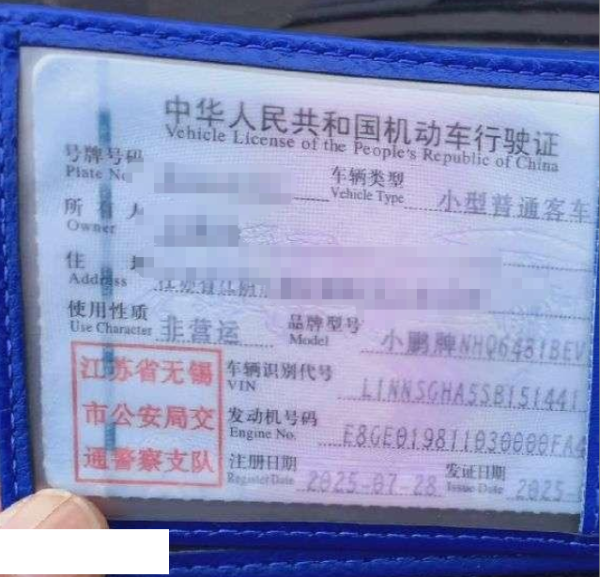 中华人民共和国机动车行驶证
Vehicle License of the People's Republic of China
号牌号码
Plate No
车辆类型 小型普通客车
Vehicle Type
所 有 人
Owner
住
Address
使用性质 非营运
Use Character
品牌型号 小鹏牌NHQ6481BEV
Model
江苏省无锡
市公安局交
通警察支队
车辆识别代号 L1NNSGHA5SB151441
VIN
发动机号码 E8GE019811030000FA4
Engine No.
注册日期 2025-07-28
Register Date
发证日期 2025-
Issue Date